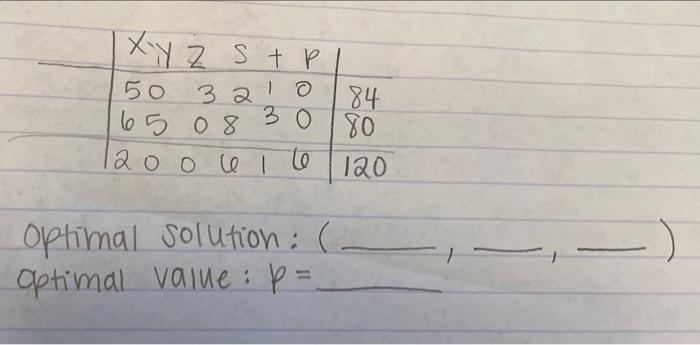 X y Z S t P
5 0 3 2 1 0 84
6 5 0 8 3 0 80
2 0 0 6 1 6 120
optimal solution: (____, ____, ____)
optimal value: p = ____